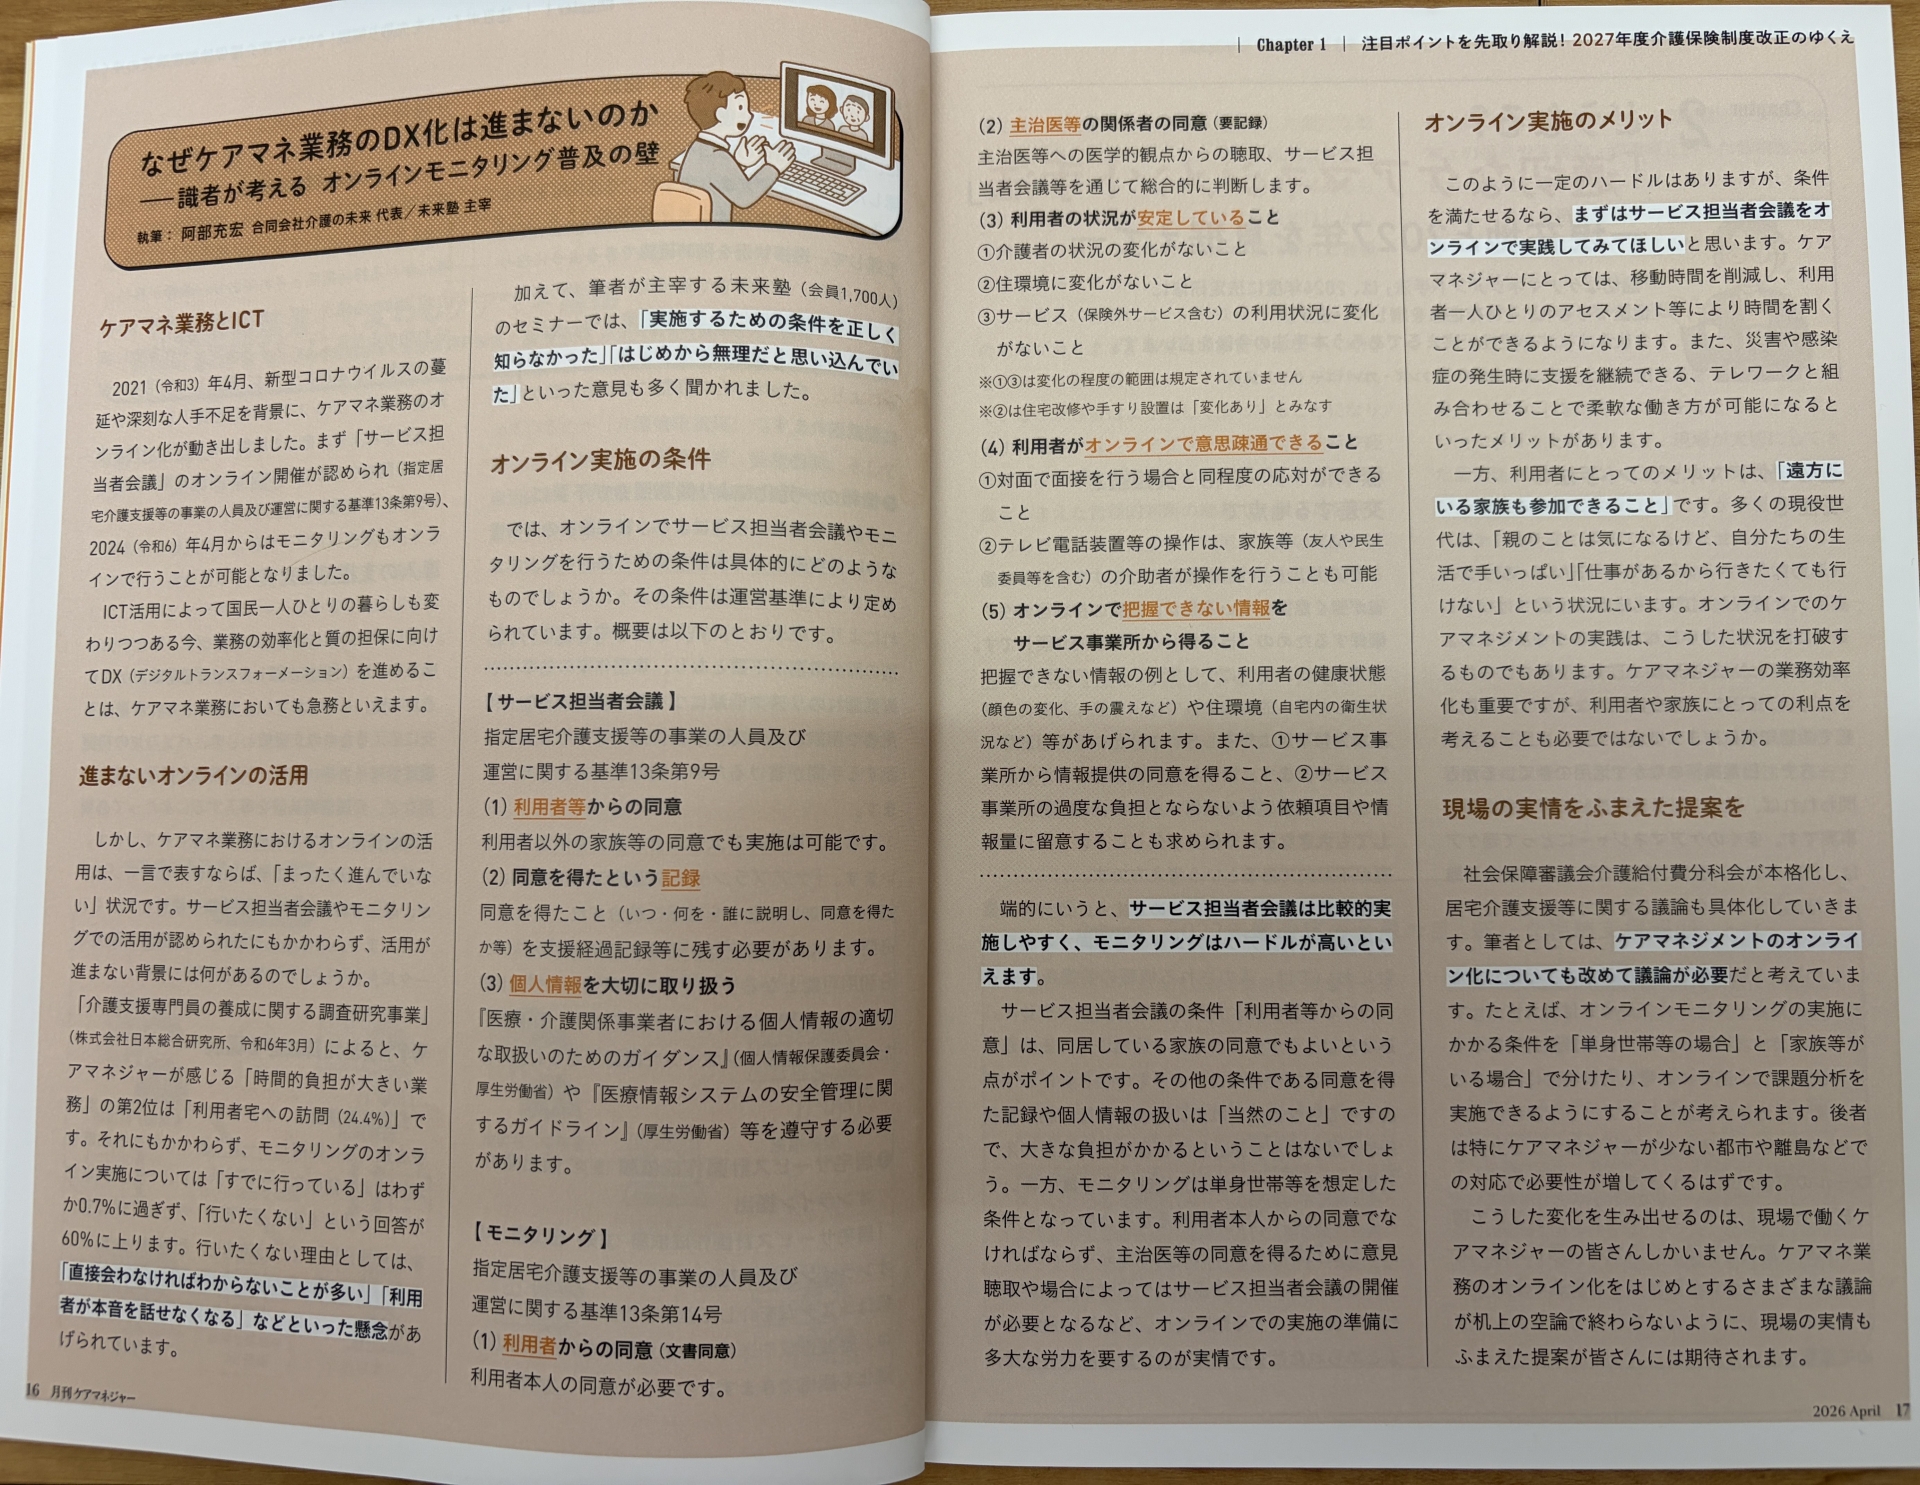 なぜケアマネ業務のDX化は進まないのか
──識者が考える オンラインモニタリング普及の壁
執筆： 阿部充宏 合同会社介護の未来 代表／未来塾 主宰
ケアマネ業務とICT
2021（令和3）年4月、新型コロナウイルスの蔓
延や深刻な人手不足を背景に、ケアマネ業務のオ
ンライン化が動き出しました。まず「サービス担
当者会議」のオンライン開催が認められ（指定居
宅介護支援等の事業の人員及び運営に関する基準13条第9号）、
2024（令和6）年4月からはモニタリングもオンラ
インで行うことが可能となりました。
ICT活用によって国民一人ひとりの暮らしも変
わりつつある今、業務の効率化と質の担保に向け
てDX（デジタルトランスフォーメーション）を進めるこ
とは、ケアマネ業務においても急務といえます。
進まないオンラインの活用
しかし、ケアマネ業務におけるオンラインの活
用は、一言で表すならば、「まったく進んでいな
い」状況です。サービス担当者会議やモニタリン
グでの活用が認められたにもかかわらず、活用が
進まない背景には何があるのでしょうか。
「介護支援専門員の養成に関する調査研究事業」
（株式会社日本総合研究所、令和6年3月）によると、ケ
アマネジャーが感じる「時間的負担が大きい業
務」の第2位は「利用者宅への訪問（24.4%）」で
す。それにもかかわらず、モニタリングのオンラ
イン実施については「すでに行っている」はわず
か0.7%に過ぎず、「行いたくない」という回答が
60%に上ります。行いたくない理由としては、
「直接会わなければわからないことが多い」「利用
者が本音を話せなくなる」などといった懸念があ
げられています。
16 月刊ケアマネジャー
加えて、筆者が主宰する未来塾（会員1,700人）
のセミナーでは、「実施するための条件を正しく
知らなかった」「はじめから無理だと思い込んでい
た」といった意見も多く聞かれました。
オンライン実施の条件
では、オンラインでサービス担当者会議やモニ
タリングを行うための条件は具体的にどのような
ものでしょうか。その条件は運営基準により定め
られています。概要は以下のとおりです。
【サービス担当者会議】
指定居宅介護支援等の事業の人員及び
運営に関する基準13条第9号
(1) 利用者等からの同意
利用者以外の家族等の同意でも実施は可能です。
(2) 同意を得たという記録
同意を得たこと（いつ・何を・誰に説明し、同意を得た
か等）を支援経過記録等に残す必要があります。
(3) 個人情報を大切に取り扱う
『医療・介護関係事業者における個人情報の適切
な取扱いのためのガイダンス』（個人情報保護委員会・
厚生労働省）や『医療情報システムの安全管理に関
するガイドライン』（厚生労働省）等を遵守する必要
があります。
【モニタリング】
指定居宅介護支援等の事業の人員及び
運営に関する基準13条第14号
(1) 利用者からの同意（文書同意）
利用者本人の同意が必要です。
｜ Chapter 1 ｜ 注目ポイントを先取り解説！2027年度介護保険制度改正のゆくえ
(2) 主治医等の関係者の同意（要記録）
主治医等への医学的観点からの聴取、サービス担
当者会議等を通じて総合的に判断します。
(3) 利用者の状況が安定していること
①介護者の状況の変化がないこと
②住環境に変化がないこと
③サービス（保険外サービス含む）の利用状況に変化
がないこと
※①③は変化の程度の範囲は規定されていません
※②は住宅改修や手すり設置は「変化あり」とみなす
(4) 利用者がオンラインで意思疎通できること
①対面で面接を行う場合と同程度の応対ができる
こと
②テレビ電話装置等の操作は、家族等（友人や民生
委員等を含む）の介助者が操作を行うことも可能
(5) オンラインで把握できない情報を
サービス事業所から得ること
把握できない情報の例として、利用者の健康状態
（顔色の変化、手の震えなど）や住環境（自宅内の衛生状
況など）等があげられます。また、①サービス事
業所から情報提供の同意を得ること、②サービス
事業所の過度な負担とならないよう依頼項目や情
報量に留意することも求められます。
端的にいうと、サービス担当者会議は比較的実
施しやすく、モニタリングはハードルが高いとい
えます。
サービス担当者会議の条件「利用者等からの同
意」は、同居している家族の同意でもよいという
点がポイントです。その他の条件である同意を得
た記録や個人情報の扱いは「当然のこと」ですの
で、大きな負担がかかるということはないでしょ
う。一方、モニタリングは単身世帯等を想定した
条件となっています。利用者本人からの同意でな
ければならず、主治医等の同意を得るために意見
聴取や場合によってはサービス担当者会議の開催
が必要となるなど、オンラインでの実施の準備に
多大な労力を要するのが実情です。
オンライン実施のメリット
このように一定のハードルはありますが、条件
を満たせるなら、まずはサービス担当者会議をオ
ンラインで実践してみてほしいと思います。ケア
マネジャーにとっては、移動時間を削減し、利用
者一人ひとりのアセスメント等により時間を割く
ことができるようになります。また、災害や感染
症の発生時に支援を継続できる、テレワークと組
み合わせることで柔軟な働き方が可能になると
いったメリットがあります。
一方、利用者にとってのメリットは、「遠方に
いる家族も参加できること」です。多くの現役世
代は、「親のことは気になるけど、自分たちの生
活で手いっぱい」「仕事があるから行きたくても行
けない」という状況にいます。オンラインでのケ
アマネジメントの実践は、こうした状況を打破す
るものでもあります。ケアマネジャーの業務効率
化も重要ですが、利用者や家族にとっての利点を
考えることも必要ではないでしょうか。
現場の実情をふまえた提案を
社会保障審議会介護給付費分科会が本格化し、
居宅介護支援等に関する議論も具体化していきま
す。筆者としては、ケアマネジメントのオンライ
ン化についても改めて議論が必要だと考えていま
す。たとえば、オンラインモニタリングの実施に
かかる条件を「単身世帯等の場合」と「家族等が
いる場合」で分けたり、オンラインで課題分析を
実施できるようにすることが考えられます。後者
は特にケアマネジャーが少ない都市や離島などで
の対応で必要性が増してくるはずです。
こうした変化を生み出せるのは、現場で働くケ
アマネジャーの皆さんしかいません。ケアマネ業
務のオンライン化をはじめとするさまざまな議論
が机上の空論で終わらないように、現場の実情も
ふまえた提案が皆さんには期待されます。
2026 April 17